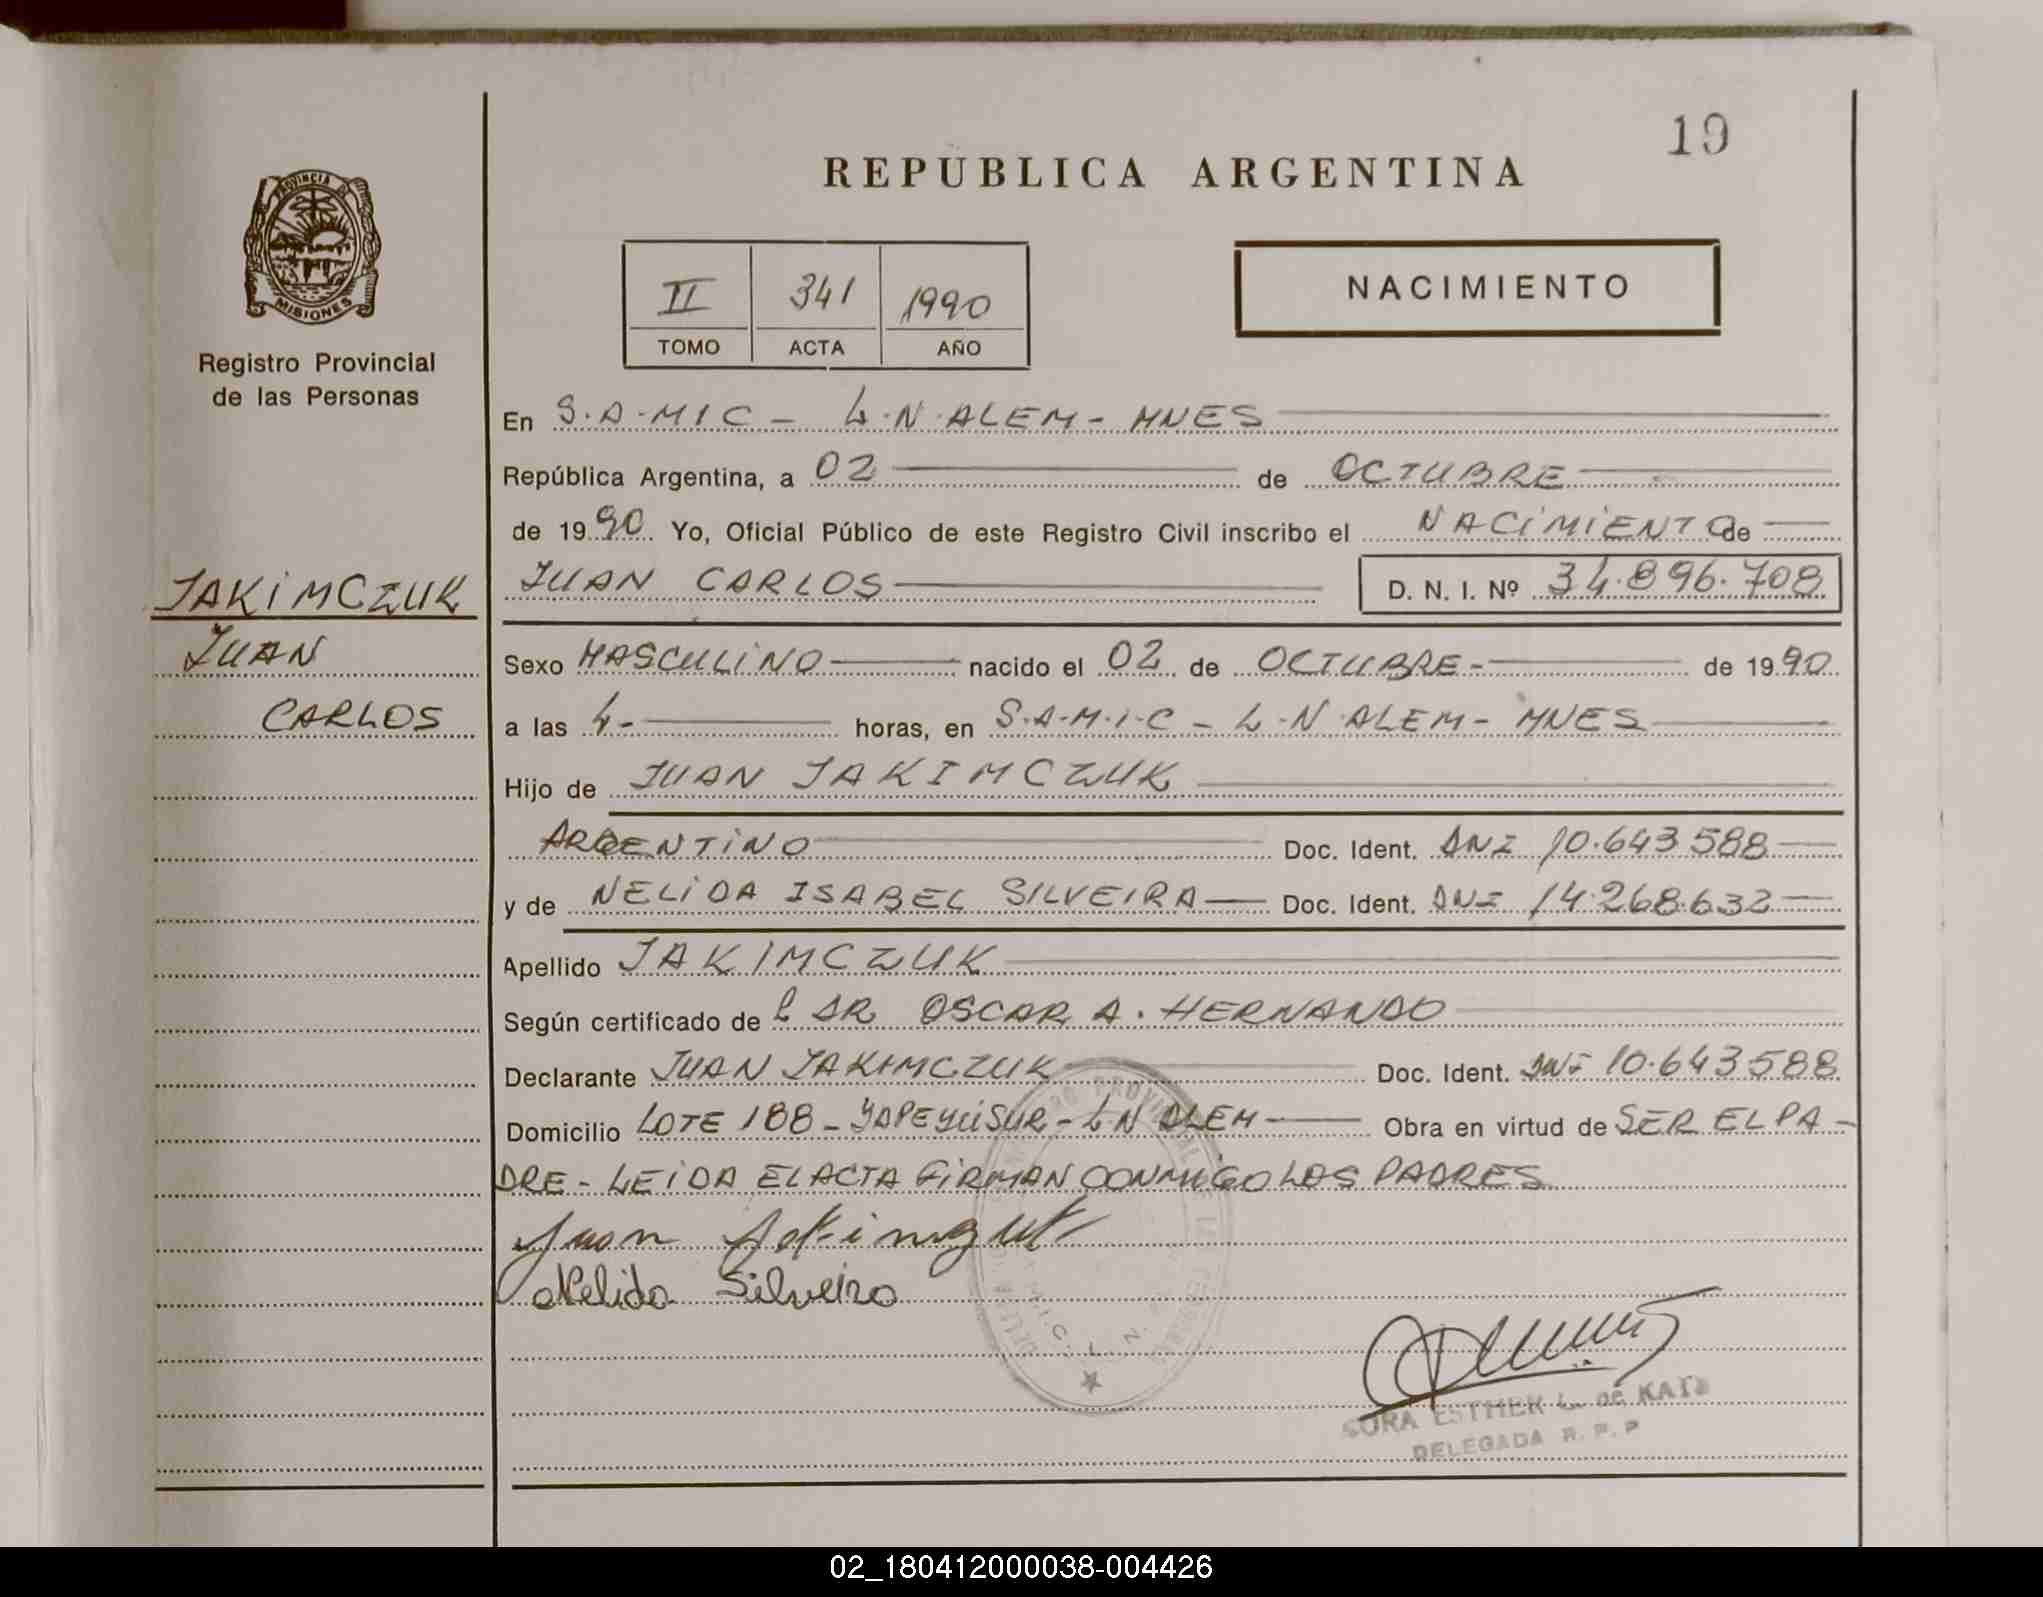 19
REPUBLICA ARGENTINA
PROVINCIA DE
MISIONES
Registro Provincial
de las Personas
II 341 1990
TOMO ACTA AÑO
NACIMIENTO
En S.A.MIC - L.N.ALEM - MNES
República Argentina, a 02 de OCTUBRE
de 1990 Yo, Oficial Público de este Registro Civil inscribo el NACIMIENTO de
JAKIMCZUK
JUAN
CARLOS
JUAN CARLOS D. N. I. Nº 34.896.708
Sexo MASCULINO nacido el 02 de OCTUBRE - de 1990
a las 4- horas, en S.A.M.I.C - L.N ALEM - MNES
Hijo de JUAN JAKIMCZUK
ARGENTINO Doc. Ident. DNI 10.643.588
y de NELIDA ISABEL SILVEIRA Doc. Ident. DNI 14.268.632
Apellido JAKIMCZUK
Según certificado de DR OSCAR A. HERNANDO
Declarante JUAN JAKIMCZUK Doc. Ident. DNI 10.643588
Domicilio LOTE 188 - YAPEYÚ SUR - L N ALEM Obra en virtud de SER EL PA-
DRE - LEIDA EL ACTA FIRMAN CONMIGO LOS PADRES
Juan
Nelida Silveira
SORA ESTHER L. de KATZ
DELEGADA R. P. P
02_180412000038-004426